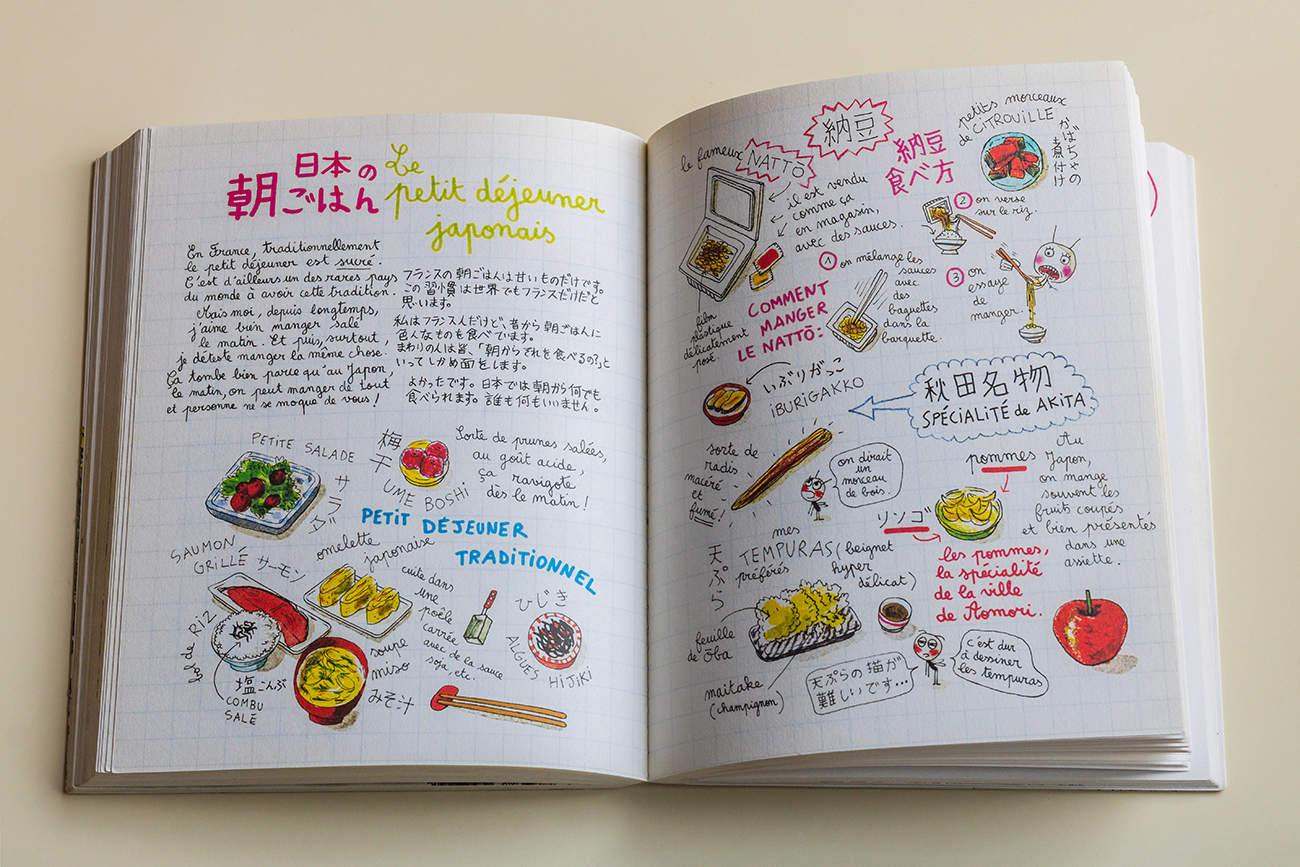 日本の
朝ごはん
Le
petit déjeuner
japonais
En France, traditionnellement
le petit déjeuner est sucré.
C'est d'ailleurs un des rares pays
du monde à avoir cette tradition.
Mais moi, depuis longtemps,
j'aime bien manger salé
le matin. Et puis, surtout,
je déteste manger la même chose.
Ça tombe bien parce qu'au Japon,
le matin, on peut manger de tout
et personne ne se moque de vous !
フランスの朝ごはんは甘いものだけです。
この習慣は世界でもフランスだけだと
思います。
私はフランス人だけど、昔から朝ごはんに
色んなものを食べています。
まわりの人は皆、「朝からそれを食べるの?」と
いってしかめ面をします。
よかったです。日本では朝から何でも
食べられます。誰も何もいいません。
PETITE SALADE
サラダ
梅干
UME BOSHI
Sorte de prunes salées,
au goût acide,
ça ravigote
dès le matin !
PETIT DÉJEUNER
TRADITIONNEL
SAUMON
GRILLÉ サーモン
omelette
japonaise
cuite dans
une
poêle
carrée
avec de la sauce
soja, etc.
ひじき
ALGUES HIJIKI
bol de RIZ
塩こんぶ
COMBU
SALÉ
soupe
miso
みそ汁
le fameux NATTŌ
納豆
納豆
食べ方
petits morceaux
de CITROUILLE
かぼちゃの
煮付け
il est vendu
comme ça
en magasin,
avec des sauces.
film
plastique
délicatement
posé.
COMMENT
MANGER
LE NATTŌ :
1 on mélange les
sauces
avec
des
baguettes
dans la
barquette.
2 on verse
sur le riz.
3 on
essaye
de
manger.
いぶりがっこ
IBURIGAKKO
秋田名物
SPÉCIALITÉ de AKITA
sorte de
radis
maceré
et
fumé !
on dirait
un
morceau
de bois.
pommes
リンゴ
Au
Japon,
on mange
souvent les
fruits coupés
et bien présentés
dans une
assiette.
les pommes,
la spécialité
de la ville
de Aomori.
天ぷら
mes
TEMPURAS (beignet
préférés hyper
délicat)
feuille
de Ōba
maitake
(champignon)
天ぷらの描が
難しいです…
c'est dur
à dessiner
les tempuras